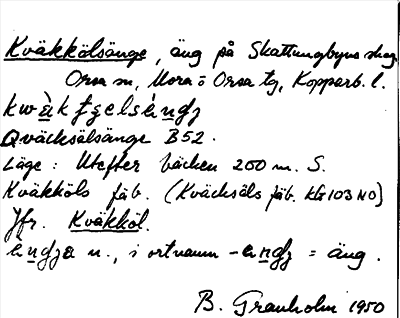 Kväkkölsänge, äng på Skattungbyns skog
Orsa sn, Mora o Orsa tg, Kopparb. l.
Qväcksälsänge B52.
Läge: Utefter bäcken 200 m. S.
Kväkköls fäb. (Kväcksäls fäb. kG 103 NO)
Jfr. Kväkköl.
n., i ortnamn = äng.
B. Granholm 1950